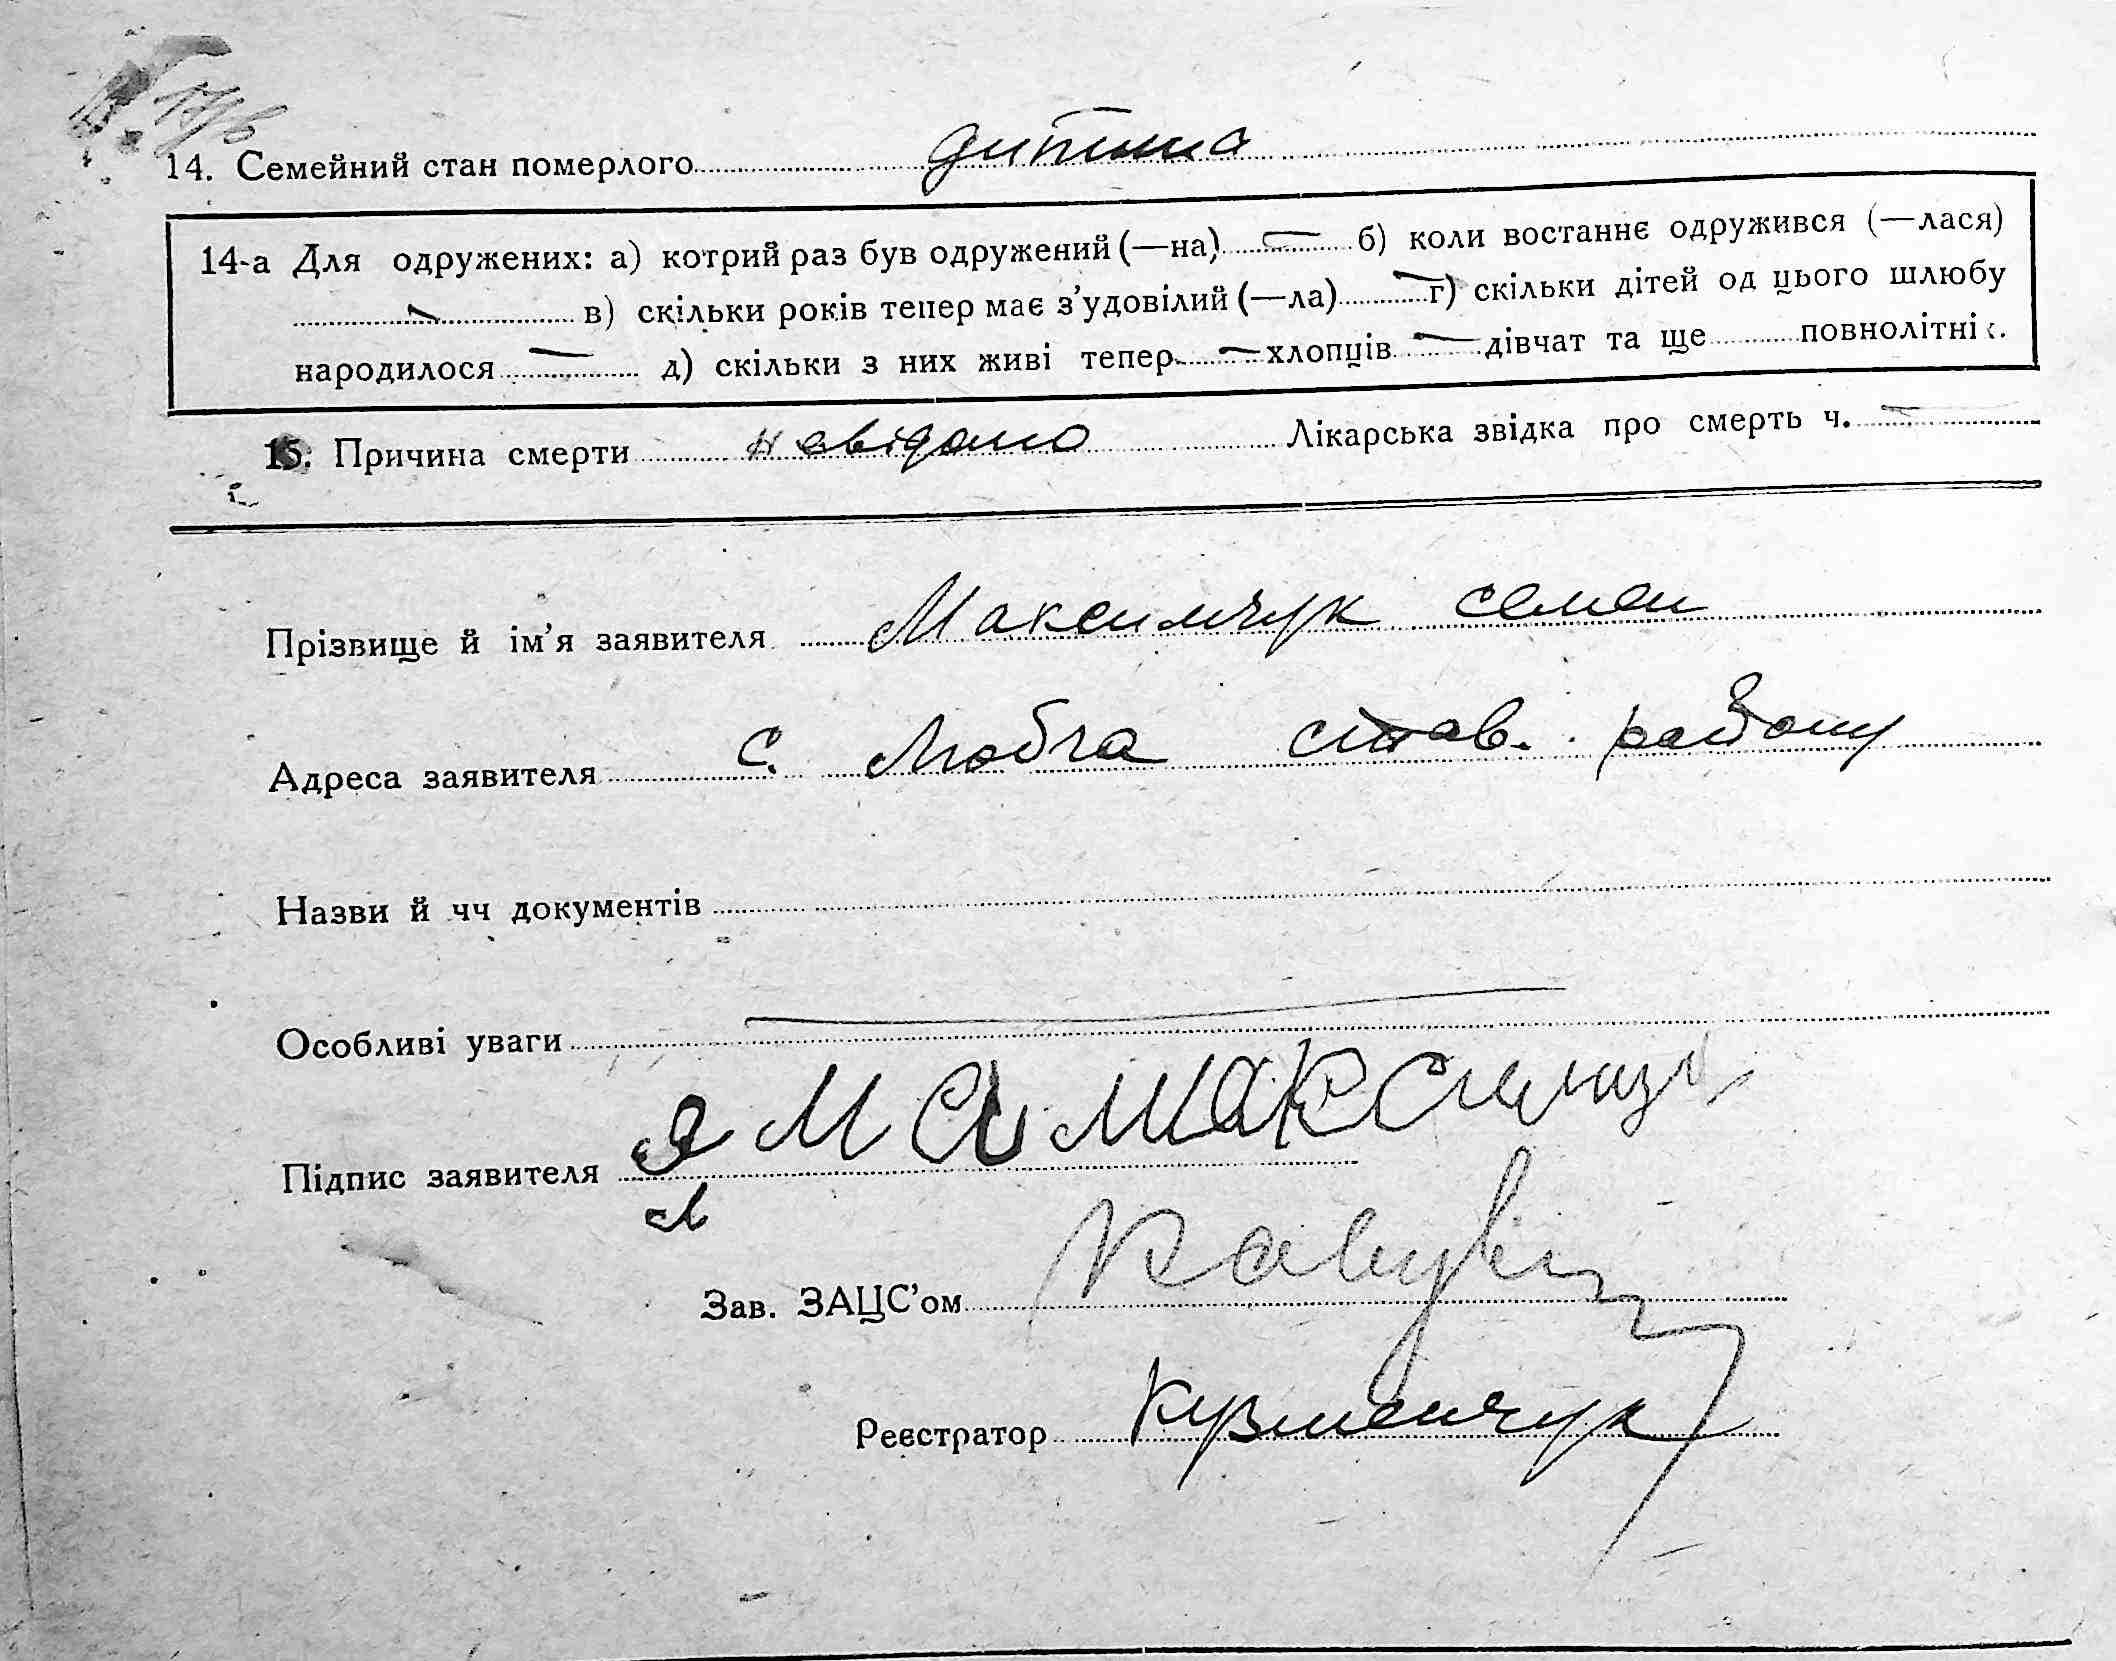 14. Семейний стан померлого дитина
14-а Для одружених: а) котрий раз був одружений (—на) — б) коли востаннє одружився (—лася)
— в) скільки років тепер має з’удовілий (—ла) — г) скільки дітей од цього шлюбу
народилося — д) скільки з них живі тепер — хлопців — дівчат та ще повнолітніх.
15. Причина смерти невідомо Лікарська звідка про смерть ч. —
Прізвище й ім’я заявителя Максимчук семен
Адреса заявителя с. Любча став. району
Назви й чч документів
Особливі уваги —
Підпис заявителя
Зав. ЗАЦС’ом
Реєстратор Кузменчук